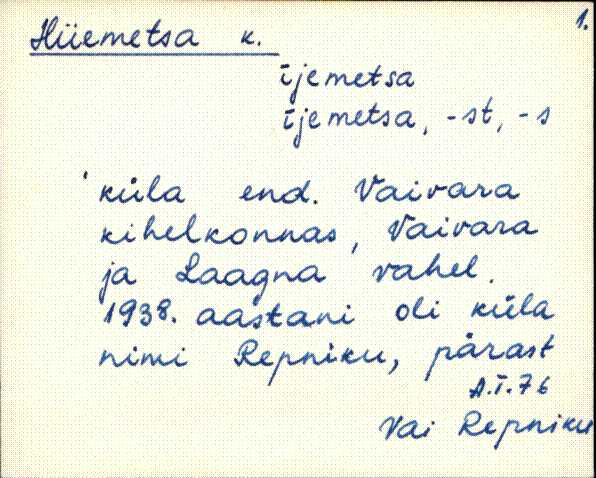 1.
Hüemetsa k.
ījemetsa
ījemetsa, -st, -s
küla end. Vaivara
kihelkonnas, Vaivara
ja Laagna vahel.
1938. aastani oli küla
nimi Repniku, pärast
A.I.76
Vai Repniku